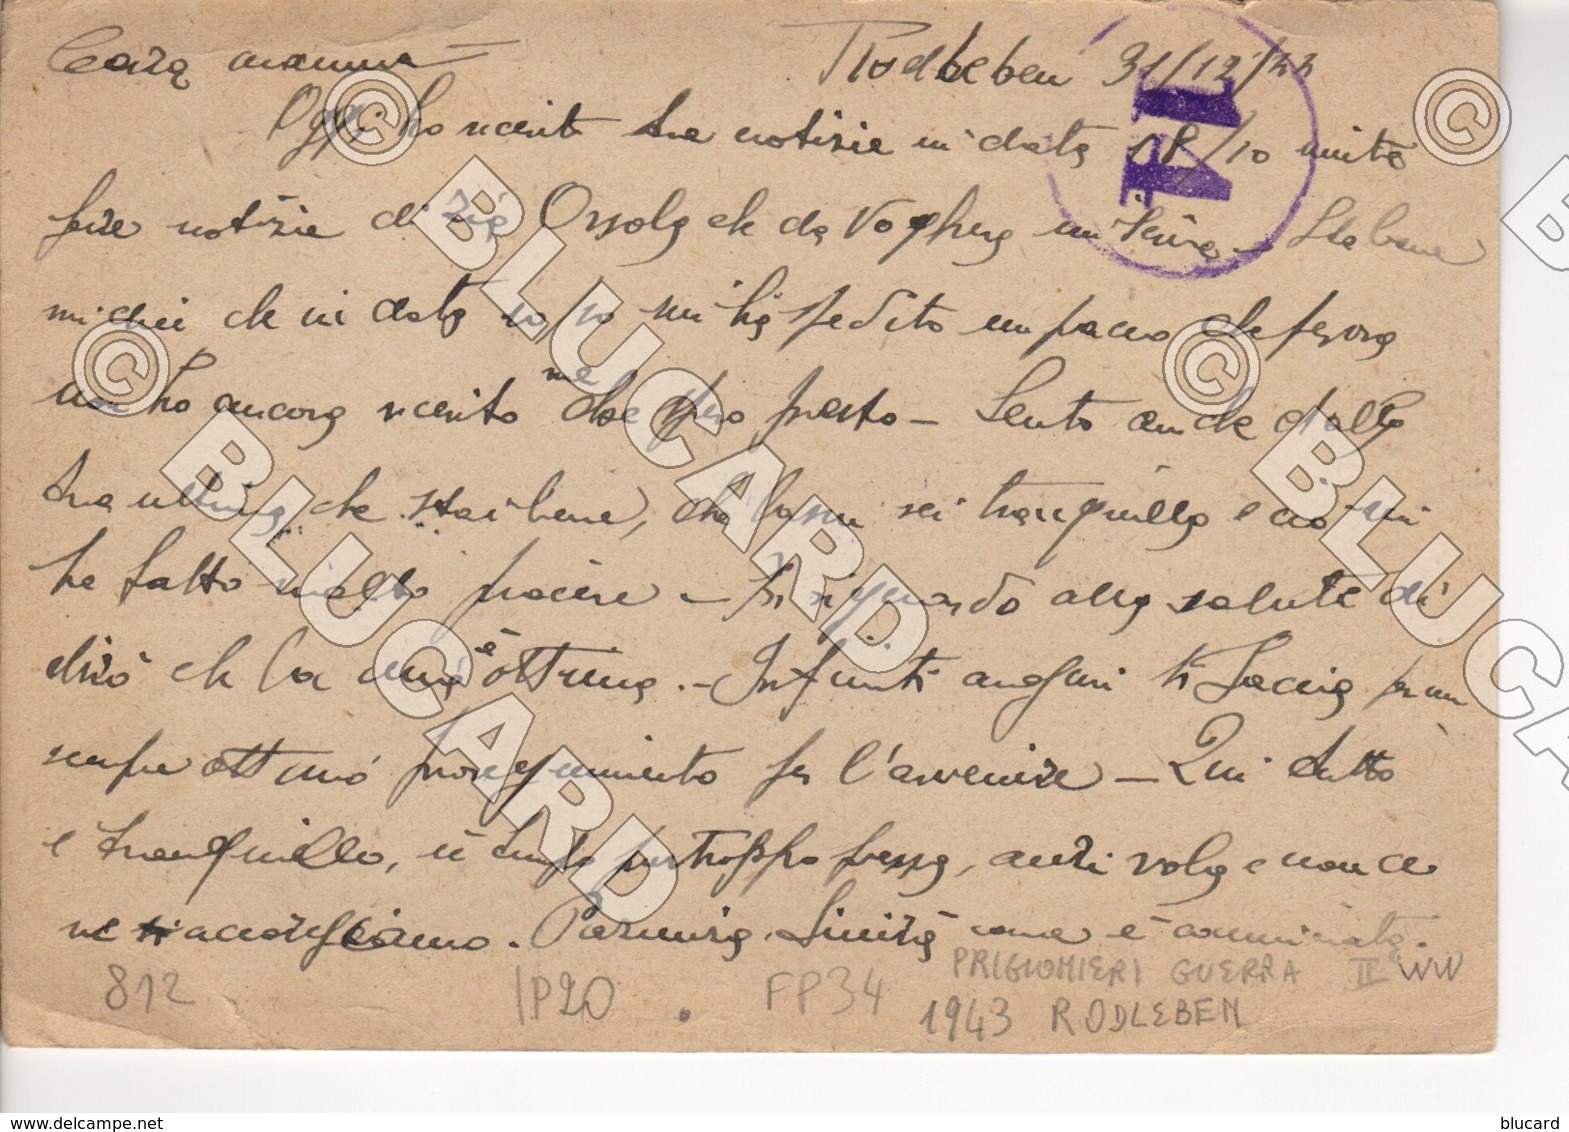 Cara mamma = Rodleben 31/12/44
Oggi ho ricevuto tue notizie in data 18/10 unite
pure notizie di zia Orsola e da Voghera
mi dici che in data 10/10 mi hai spedito un pacco che finora
non ho ancora ricevuto me che spero presto - Sento anche dalla
tua ultima che stai bene, che sei tranquilla e ciò mi
ha fatto molto piacere - In riguardo alla salute ti
dirò che la mia è ottima. - Infiniti auguri ti faccia per un
sempre ottimo proseguimento per l'avvenire - Qui tutto
è tranquillo, il tempo purtroppo passa, anzi vola e non ce
ne accorgiamo. Finirà come è cominciata.
812 IP20 . FP34 PRIGIONIERI GUERRA II WW
1943 RODLEBEN
14
© BLUCARD
© BLUCARD
© BLUCARD
www.delcampe.net blucard